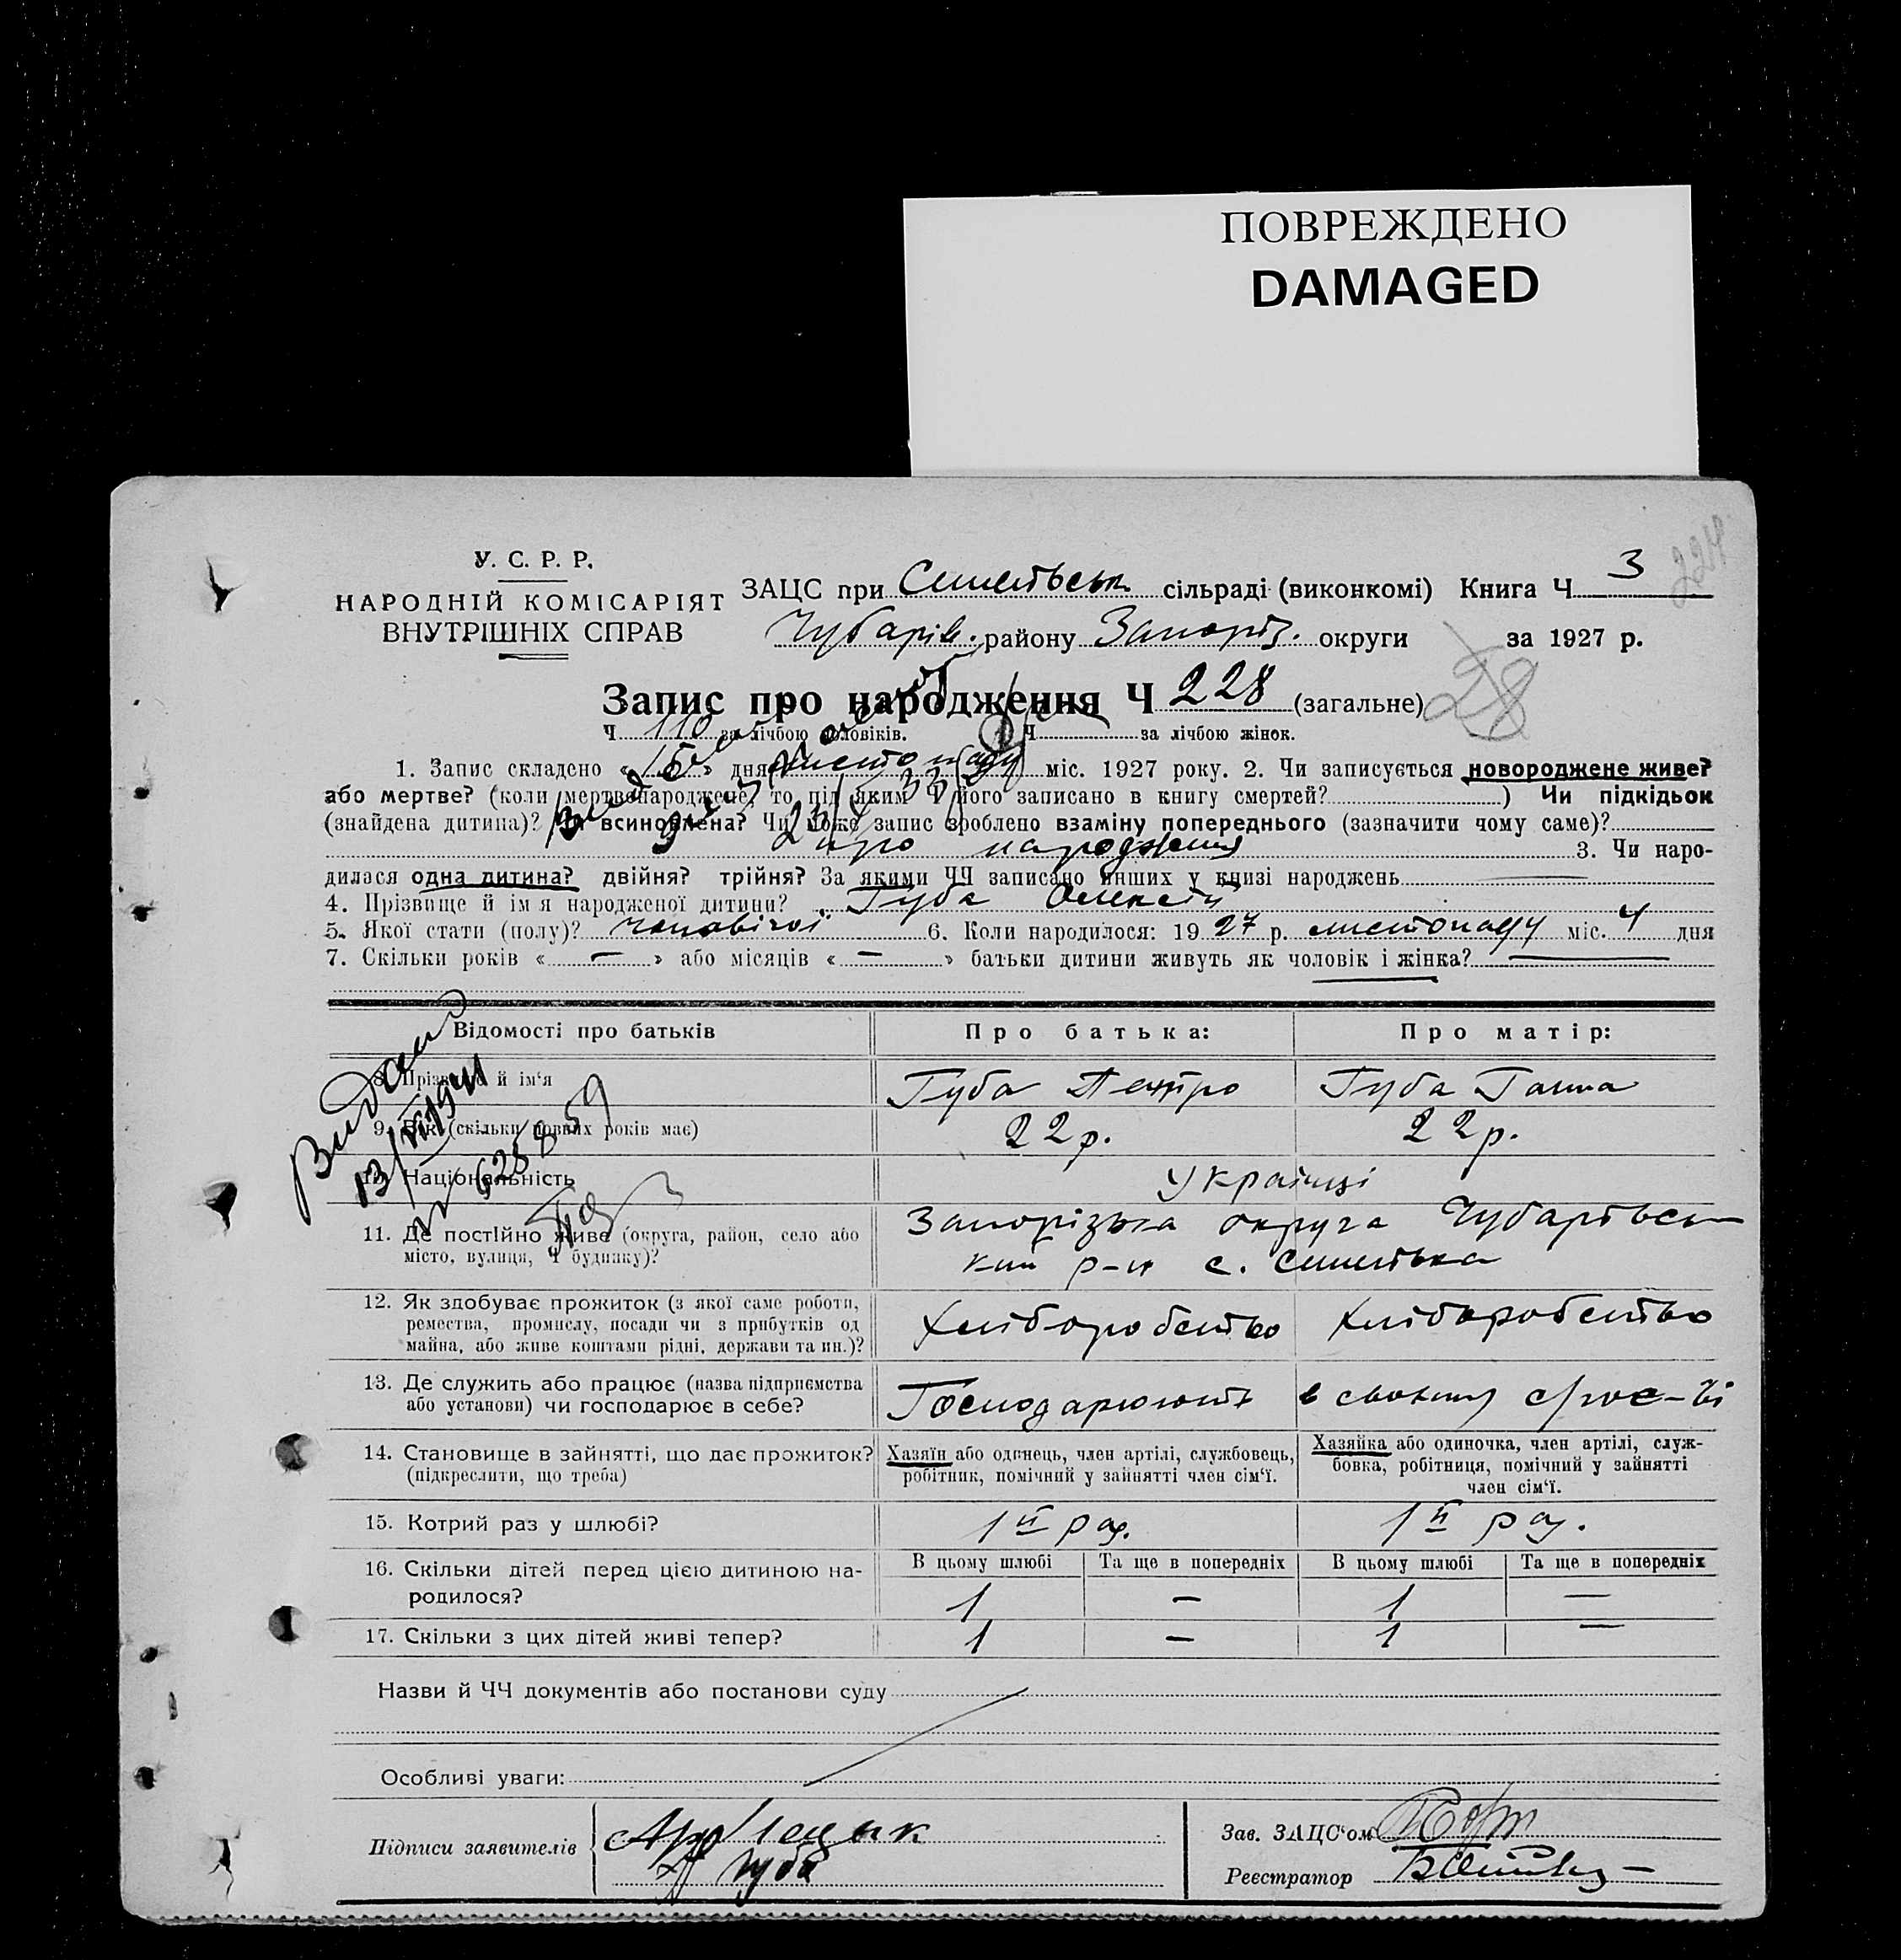 ПОВРЕЖДЕНО
DAMAGED
224
У. С. Р. Р.
НАРОДНІЙ КОМІСАРІЯТ
ВНУТРІШНІХ СПРАВ
ЗАЦС при сільраді (виконкомі) Книга Ч 3
Чубарів. району Запоріз. округи за 1927 р.
Запис про народження Ч 228 (загальне) 28
Ч 110 за лічбою чоловіків. Ч за лічбою жінок.
1. Запис складено « 15 » дня листопаду міс. 1927 року. 2. Чи записується новороджене живе?
або мертве? (коли мертвонароджене, то під яким Ч його записано в книгу смертей? ) Чи підкідьок
(знайдена дитина)? Чи всиновлена? Чи може запис зроблено взаміну попереднього (зазначити чому саме)?
про народження 3. Чи наро-
дилася одна дитина? двійня? трійня? За якими ЧЧ записано инших у книзі народжень —
4. Прізвище й ім'я народженої дитини? Губа Олексій
5. Якої стати (полу)? чоловічої 6. Коли народилося: 19 27 р. листопаду міс. 4 дня
7. Скільки років « — » або місяців « — » батьки дитини живуть як чоловік і жінка? —
Видано
13/VII 1941
№ 628859
Відомості про батьків Про батька: Про матір:
8. Прізвище й ім'я Губа Петро Губа Ганна
9. Вік (скільки повних років має) 22 р. 22 р.
10. Національність Українці
11. Де постійно живе (округа, район, село або Запорізька округа Чубарівсь
місто, вулиця, Ч будинку)? кий р-н с.
12. Як здобуває прожиток (з якої саме роботи, Хліборобство Хліборобство
ремества, промислу, посади чи з прибутків од
майна, або живе коштами рідні, держави та ин.)?
13. Де служить або працює (назва підприємства Господарюють в своєму
або установи) чи господарює в себе?
14. Становище в зайнятті, що дає прожиток? Хазяїн або одинець, член артілі, службовець, Хазяйка або одиночка, член артілі, служ-
(підкреслити, що треба) робітник, помічний у зайнятті член сім'ї. бовка, робітниця, помічний у зайнятті
член сім'ї.
15. Котрий раз у шлюбі? 1й раз. 1й раз.
16. Скільки дітей перед цією дитиною на- В цьому шлюбі Та ще в попередніх В цьому шлюбі Та ще в попередніх
родилося? 1 — 1 —
17. Скільки з цих дітей живі тепер? 1 — 1 —
Назви й ЧЧ документів або постанови суду
Особливі уваги:
Підписи заявителів
Губа
Зав. ЗАЦС'ом
Реєстратор